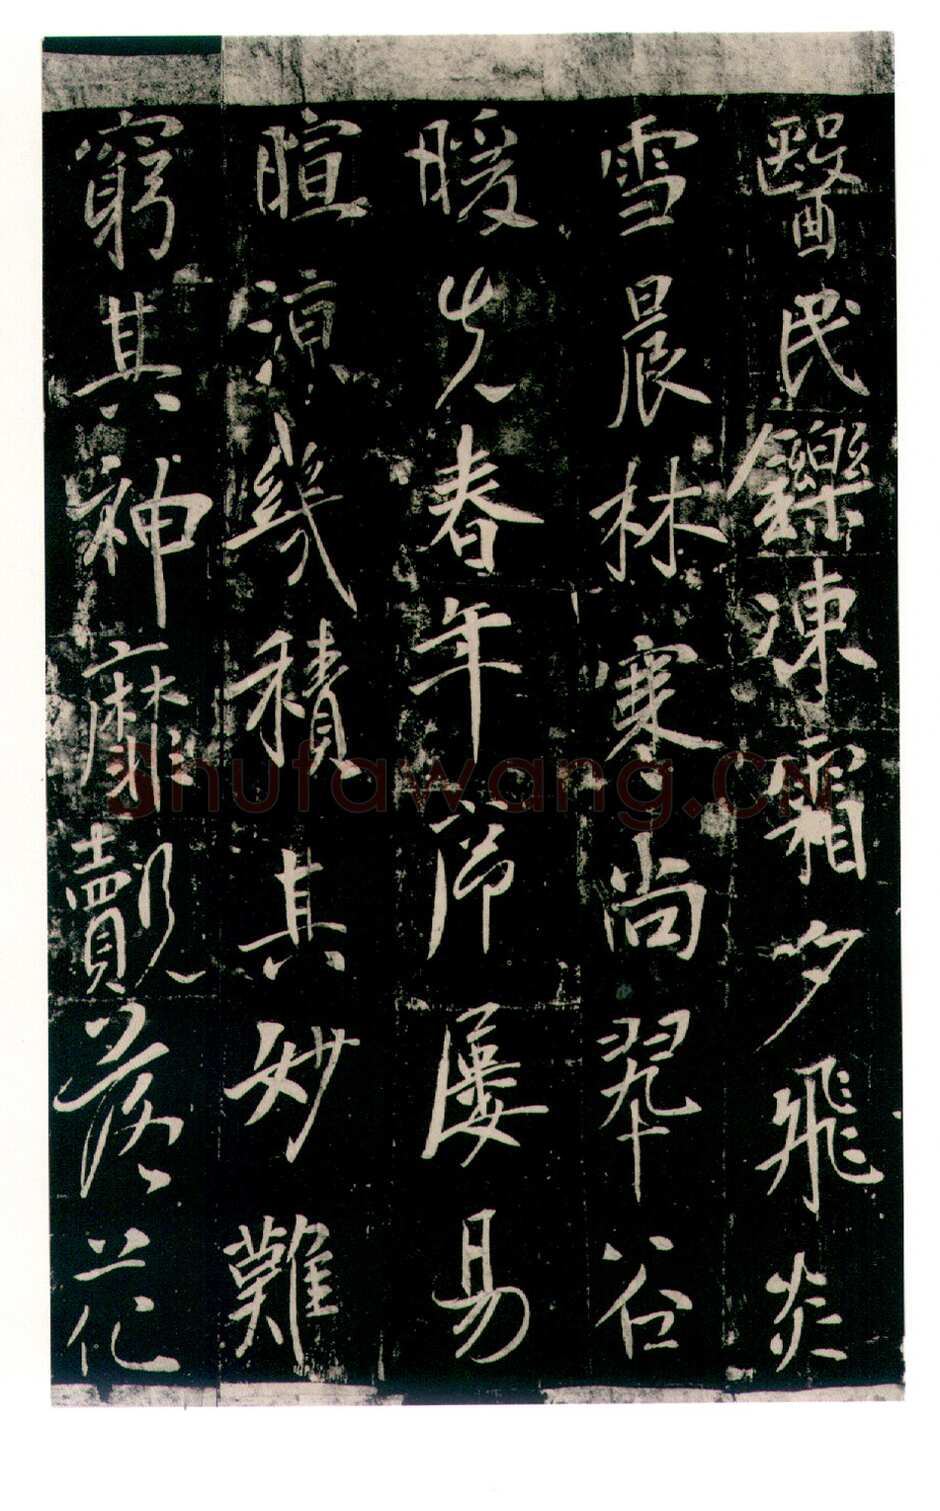 醫民鑠凍霜夕飛炎
雪晨林寒尚翠谷
暖先春年序屢易
暄涼幾積其妙難
窮其神靡覿落花
Shufawang.CN